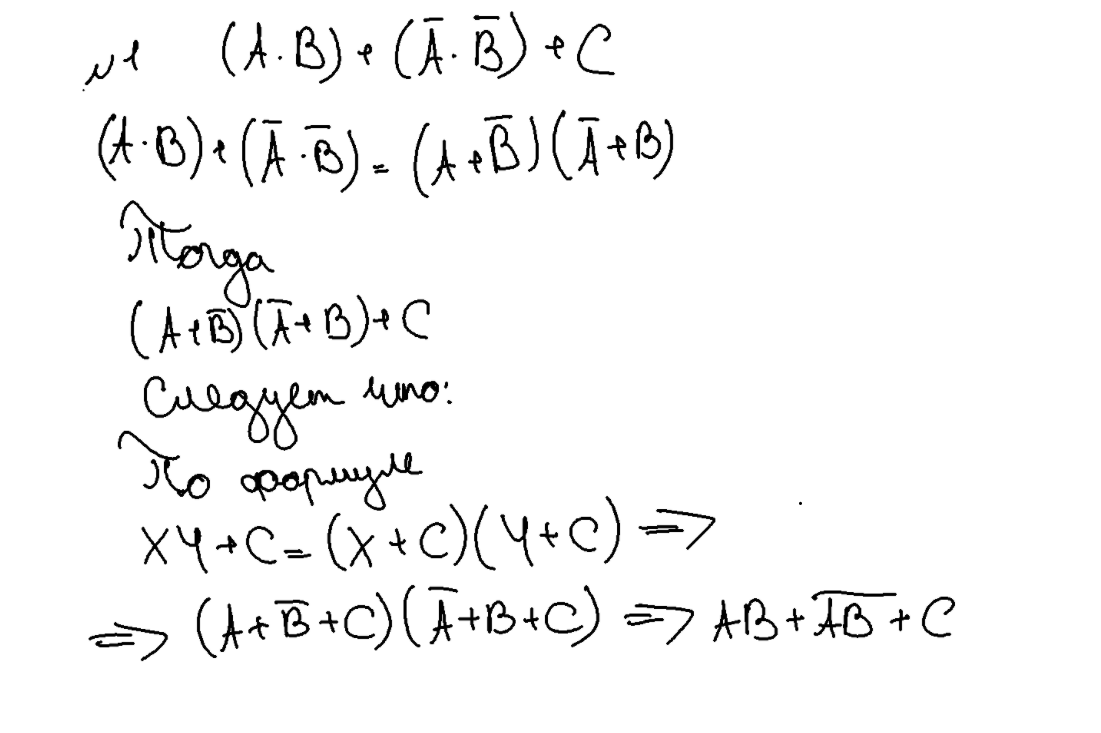 №1 (A·B)+(A̅·B̅)+C
(A·B)+(A̅·B̅)=(A+B̅)(A̅+B)
Тогда
(A+B̅)(A̅+B)+C
Следует что:
По формуле
XY+C=(X+C)(Y+C) =>
=> (A+B̅+C)(A̅+B+C) => AB+A̅B̅+C